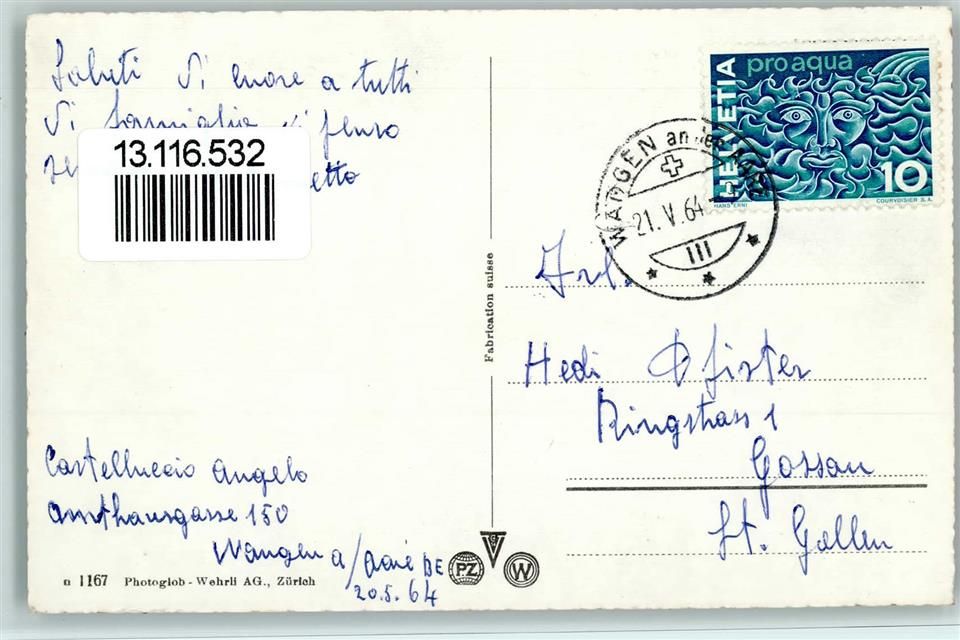 Saluti di cuore a tutti
di famiglia vi penso
etto
13.116.532
Castelluccio Angelo
Amthausgasse 150
Wangen a/Aare BE
20.5.64
n 1167 Photoglob - Wehrli AG., Zürich
PZ
G
W
Fabrication suisse
HELVETIA
pro aqua
10
HANS ERNI
COURVOISIER S.A.
WANGEN an der Aare
21.V.64
III
Frl.
Hedi Pfister
Ringstrass 1
Gossau
St. Gallen